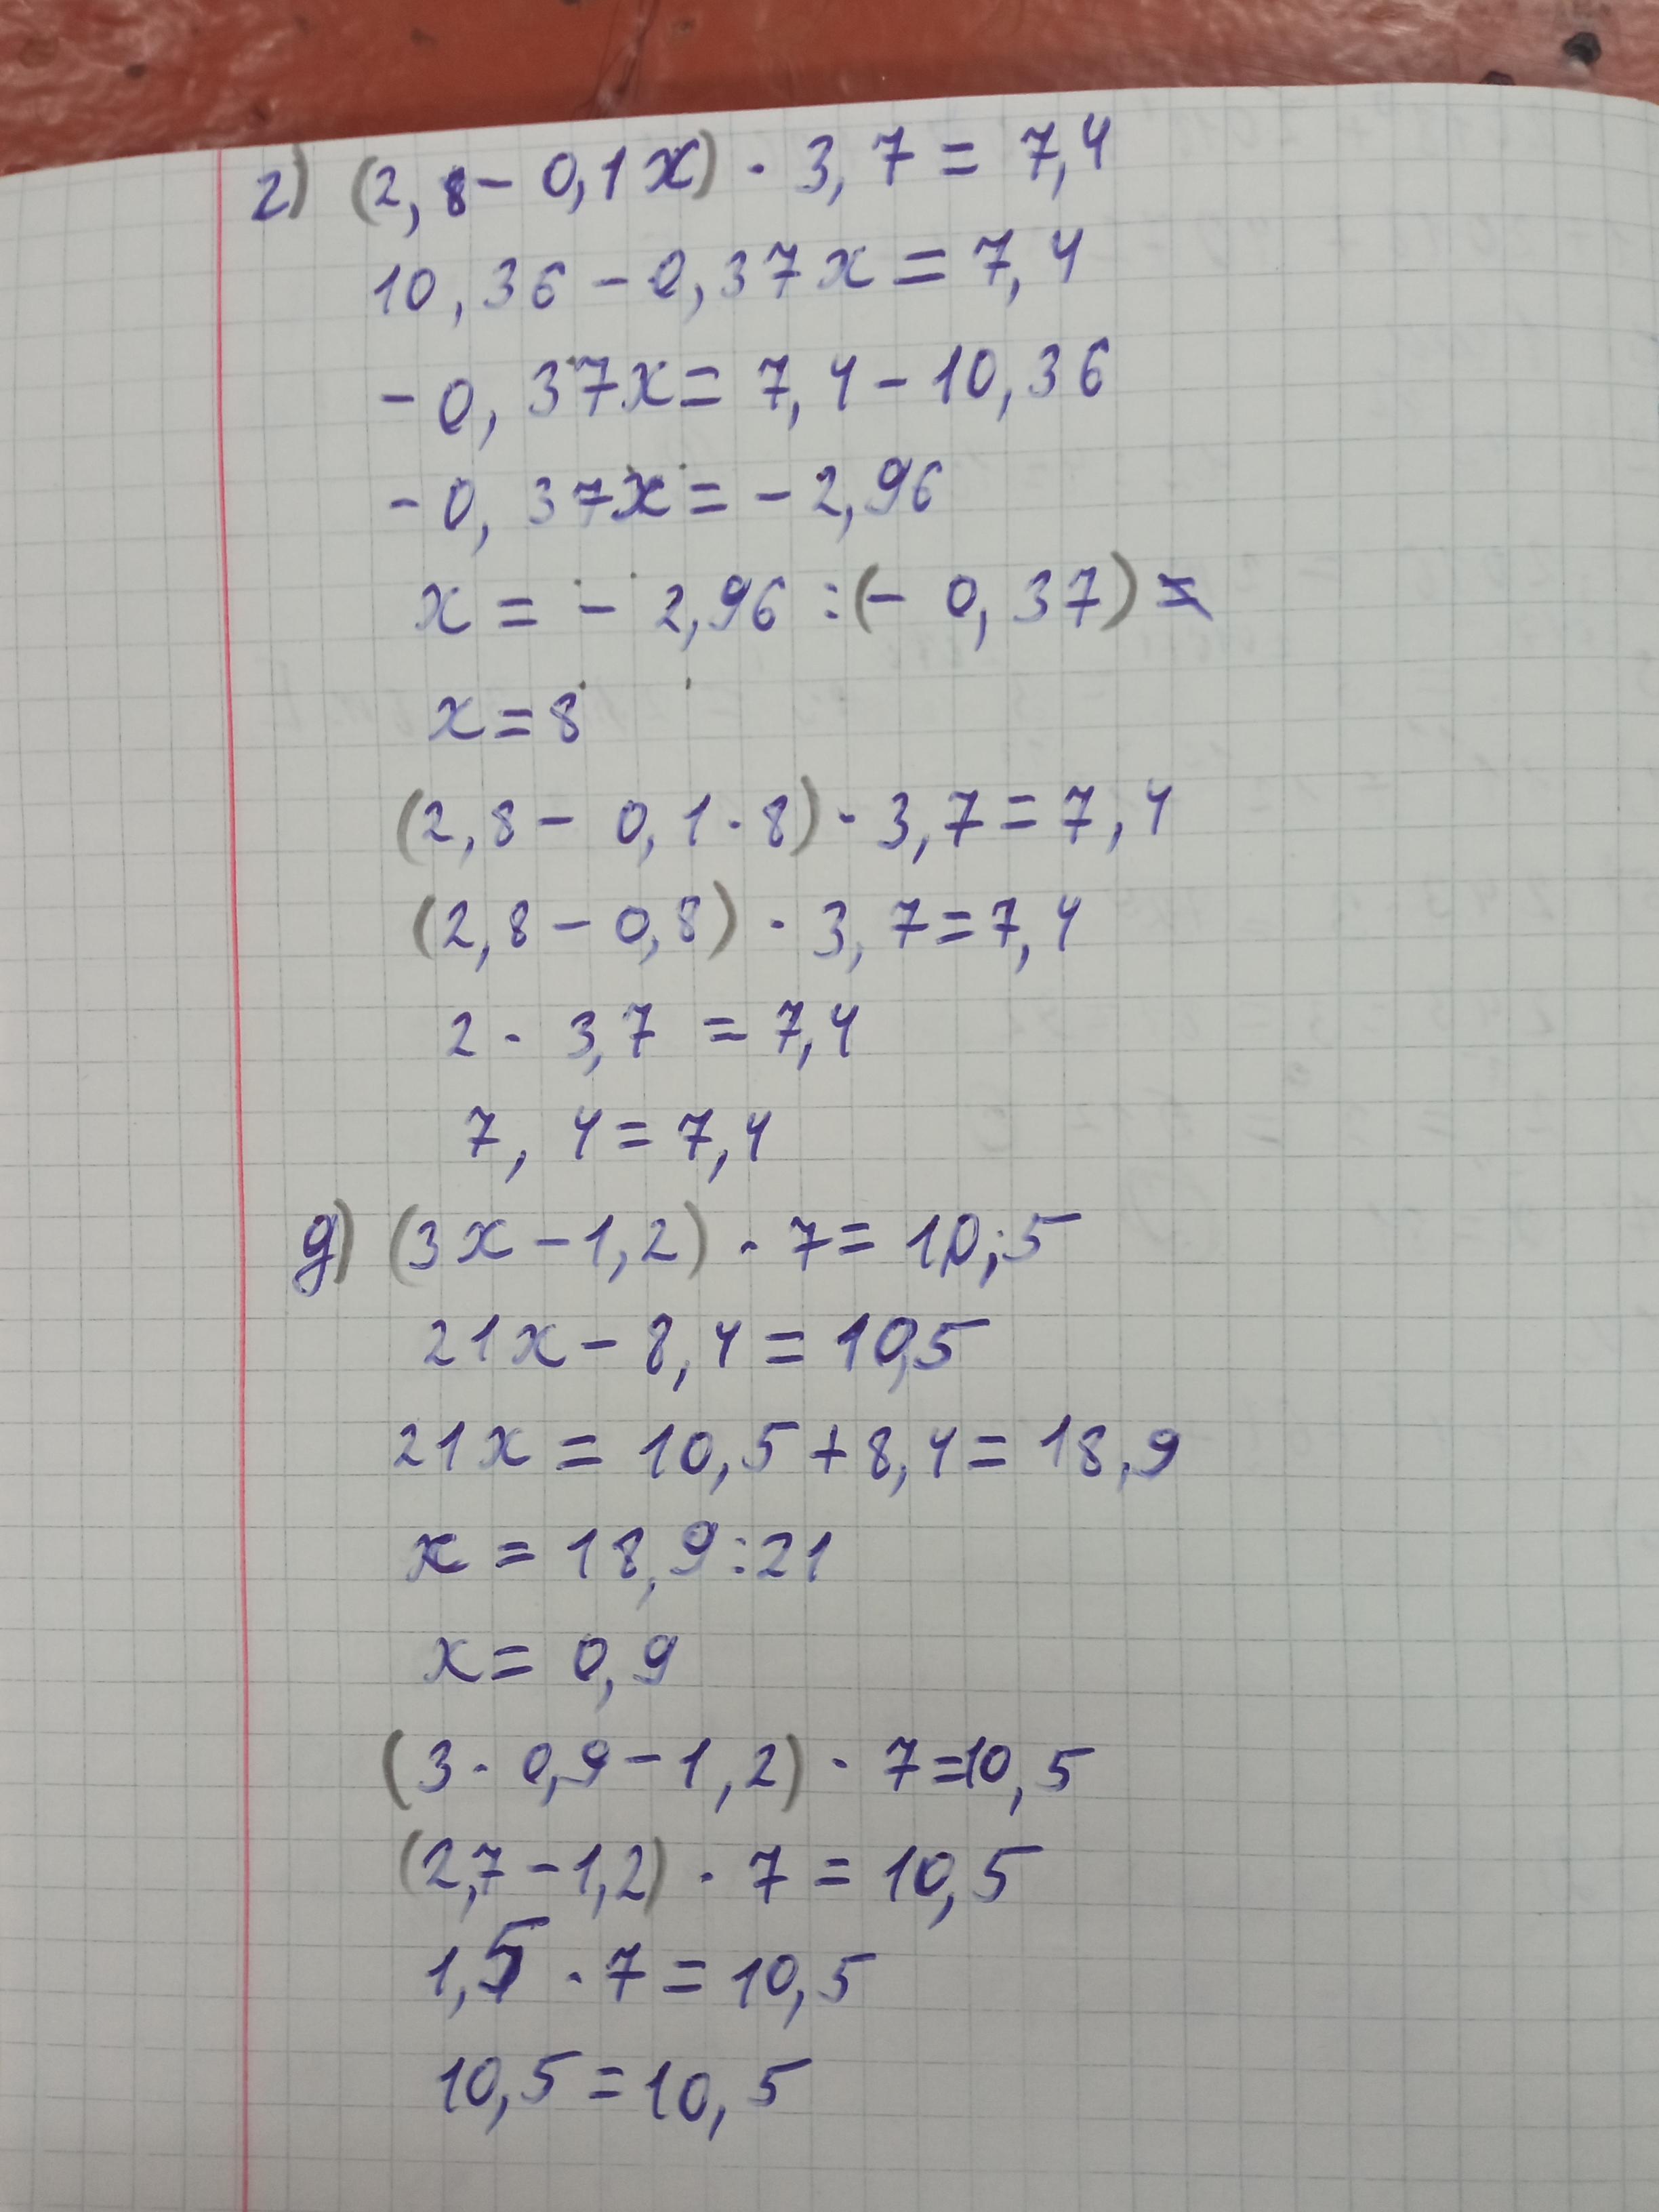 г) (2,8 - 0,1x) · 3,7 = 7,4
10,36 - 0,37x = 7,4
-0,37x = 7,4 - 10,36
-0,37x = -2,96
x = -2,96 : (-0,37) =
x = 8
(2,8 - 0,1 · 8) · 3,7 = 7,4
(2,8 - 0,8) · 3,7 = 7,4
2 · 3,7 = 7,4
7,4 = 7,4
д) (3x - 1,2) · 7 = 10,5
21x - 8,4 = 10,5
21x = 10,5 + 8,4 = 18,9
x = 18,9 : 21
x = 0,9
(3 · 0,9 - 1,2) · 7 = 10,5
(2,7 - 1,2) · 7 = 10,5
1,5 · 7 = 10,5
10,5 = 10,5